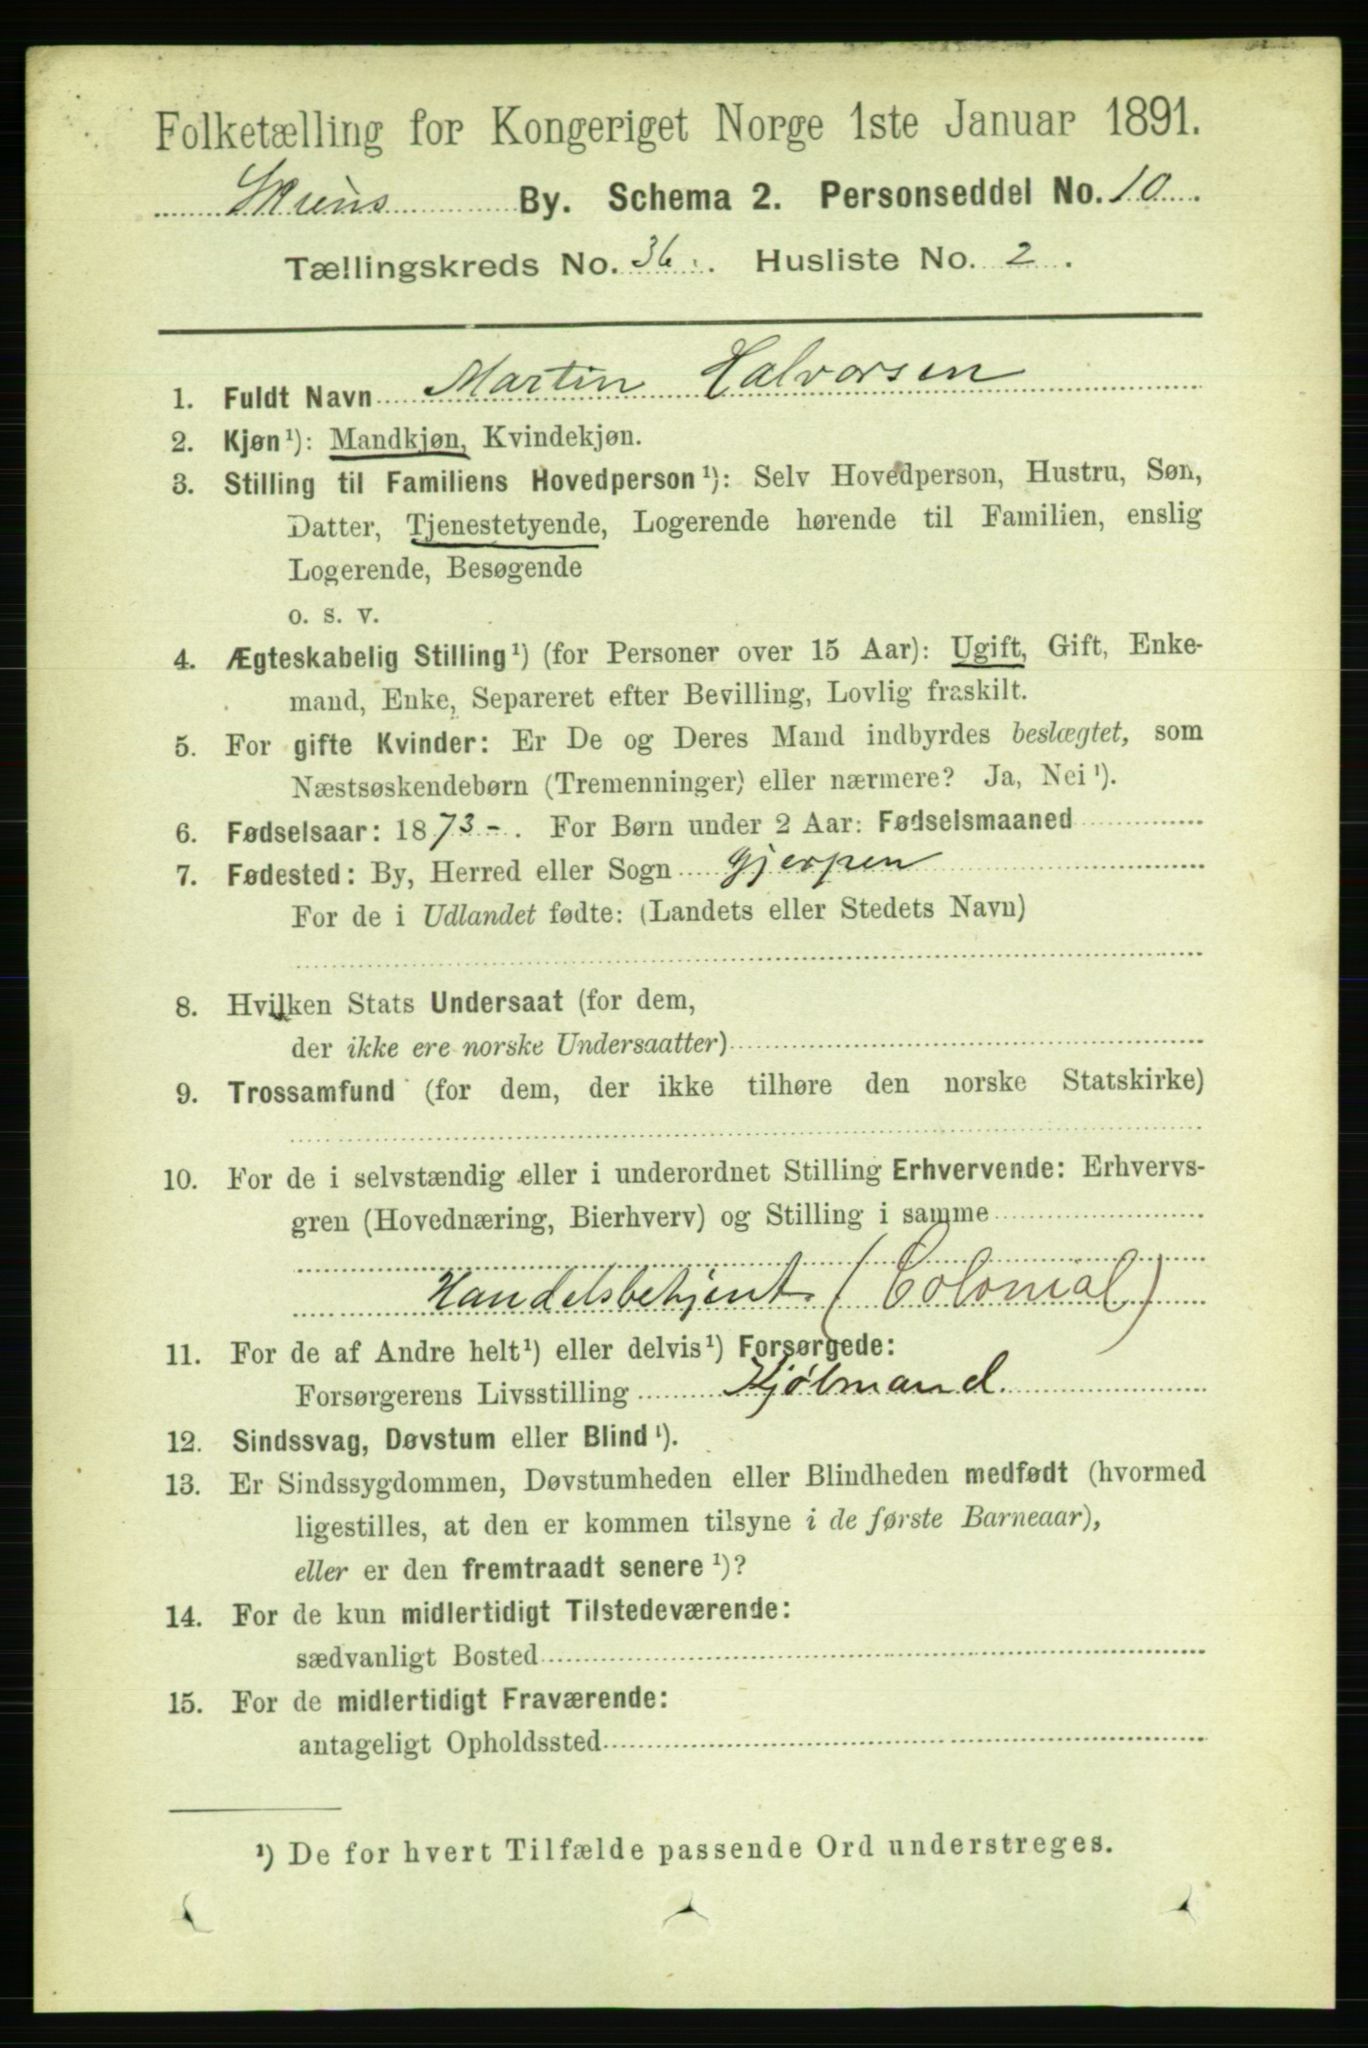 Folketælling for Kongeriget Norge 1ste Januar 1891.
Skiens By. Schema 2. Personseddel No. 10.
Tællingskreds No. 36. Husliste No. 2.
1. Fuldt Navn Martin Halvorsen
2. Kjøn¹): Mandkjøn, Kvindekjøn.
3. Stilling til Familiens Hovedperson¹): Selv Hovedperson, Hustru, Søn,
Datter, Tjenestetyende, Logerende hørende til Familien, enslig
Logerende, Besøgende
o. s. v.
4. Ægteskabelig Stilling¹) (for Personer over 15 Aar): Ugift, Gift, Enke-
mand, Enke, Separeret efter Bevilling, Lovlig fraskilt.
5. For gifte Kvinder: Er De og Deres Mand indbyrdes beslægtet, som
Næstsøskendebørn (Tremenninger) eller nærmere? Ja, Nei¹).
6. Fødselsaar: 1873-. For Børn under 2 Aar: Fødselsmaaned
7. Fødested: By, Herred eller Sogn Gjerpen
For de i Udlandet fødte: (Landets eller Stedets Navn)
8. Hvilken Stats Undersaat (for dem,
der ikke ere norske Undersaatter)
9. Trossamfund (for dem, der ikke tilhøre den norske Statskirke)
10. For de i selvstændig eller i underordnet Stilling Erhvervende: Erhvervs-
gren (Hovednæring, Bierhverv) og Stilling i samme
Handelsbetjent (Colonial)
11. For de af Andre helt¹) eller delvis¹) Forsørgede:
Forsørgerens Livsstilling Kjølmand.
12. Sindssvag, Døvstum eller Blind¹).
13. Er Sindssygdommen, Døvstumheden eller Blindheden medfødt (hvormed
ligestilles, at den er kommen tilsyne i de første Barneaar),
eller er den fremtraadt senere¹)?
14. For de kun midlertidigt Tilstedeværende:
sædvanligt Bosted
15. For de midlertidigt Fraværende:
antageligt Opholdssted
¹) De for hvert Tilfælde passende Ord understreges.